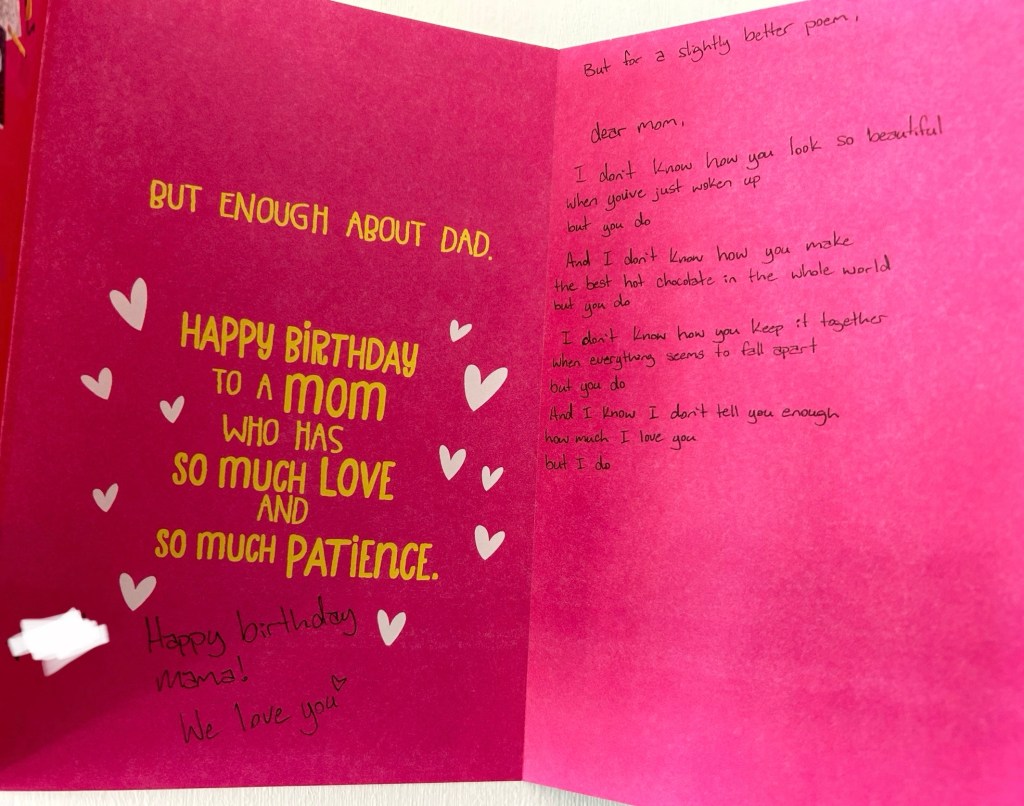 BUT ENOUGH ABOUT DAD.
HAPPY BIRTHDAY
TO A MOM
WHO HAS
SO MUCH LOVE
AND
SO MUCH PATIENCE.
Happy birthday
mama!
We love you
But for a slightly better poem,
dear mom,
I don't know how you look so beautiful
when you've just woken up
but you do
And I don't know how you make
the best hot chocolate in the whole world
but you do
I don't know how you keep it together
when everything seems to fall apart
but you do
And I know I don't tell you enough
how much I love you
but I do